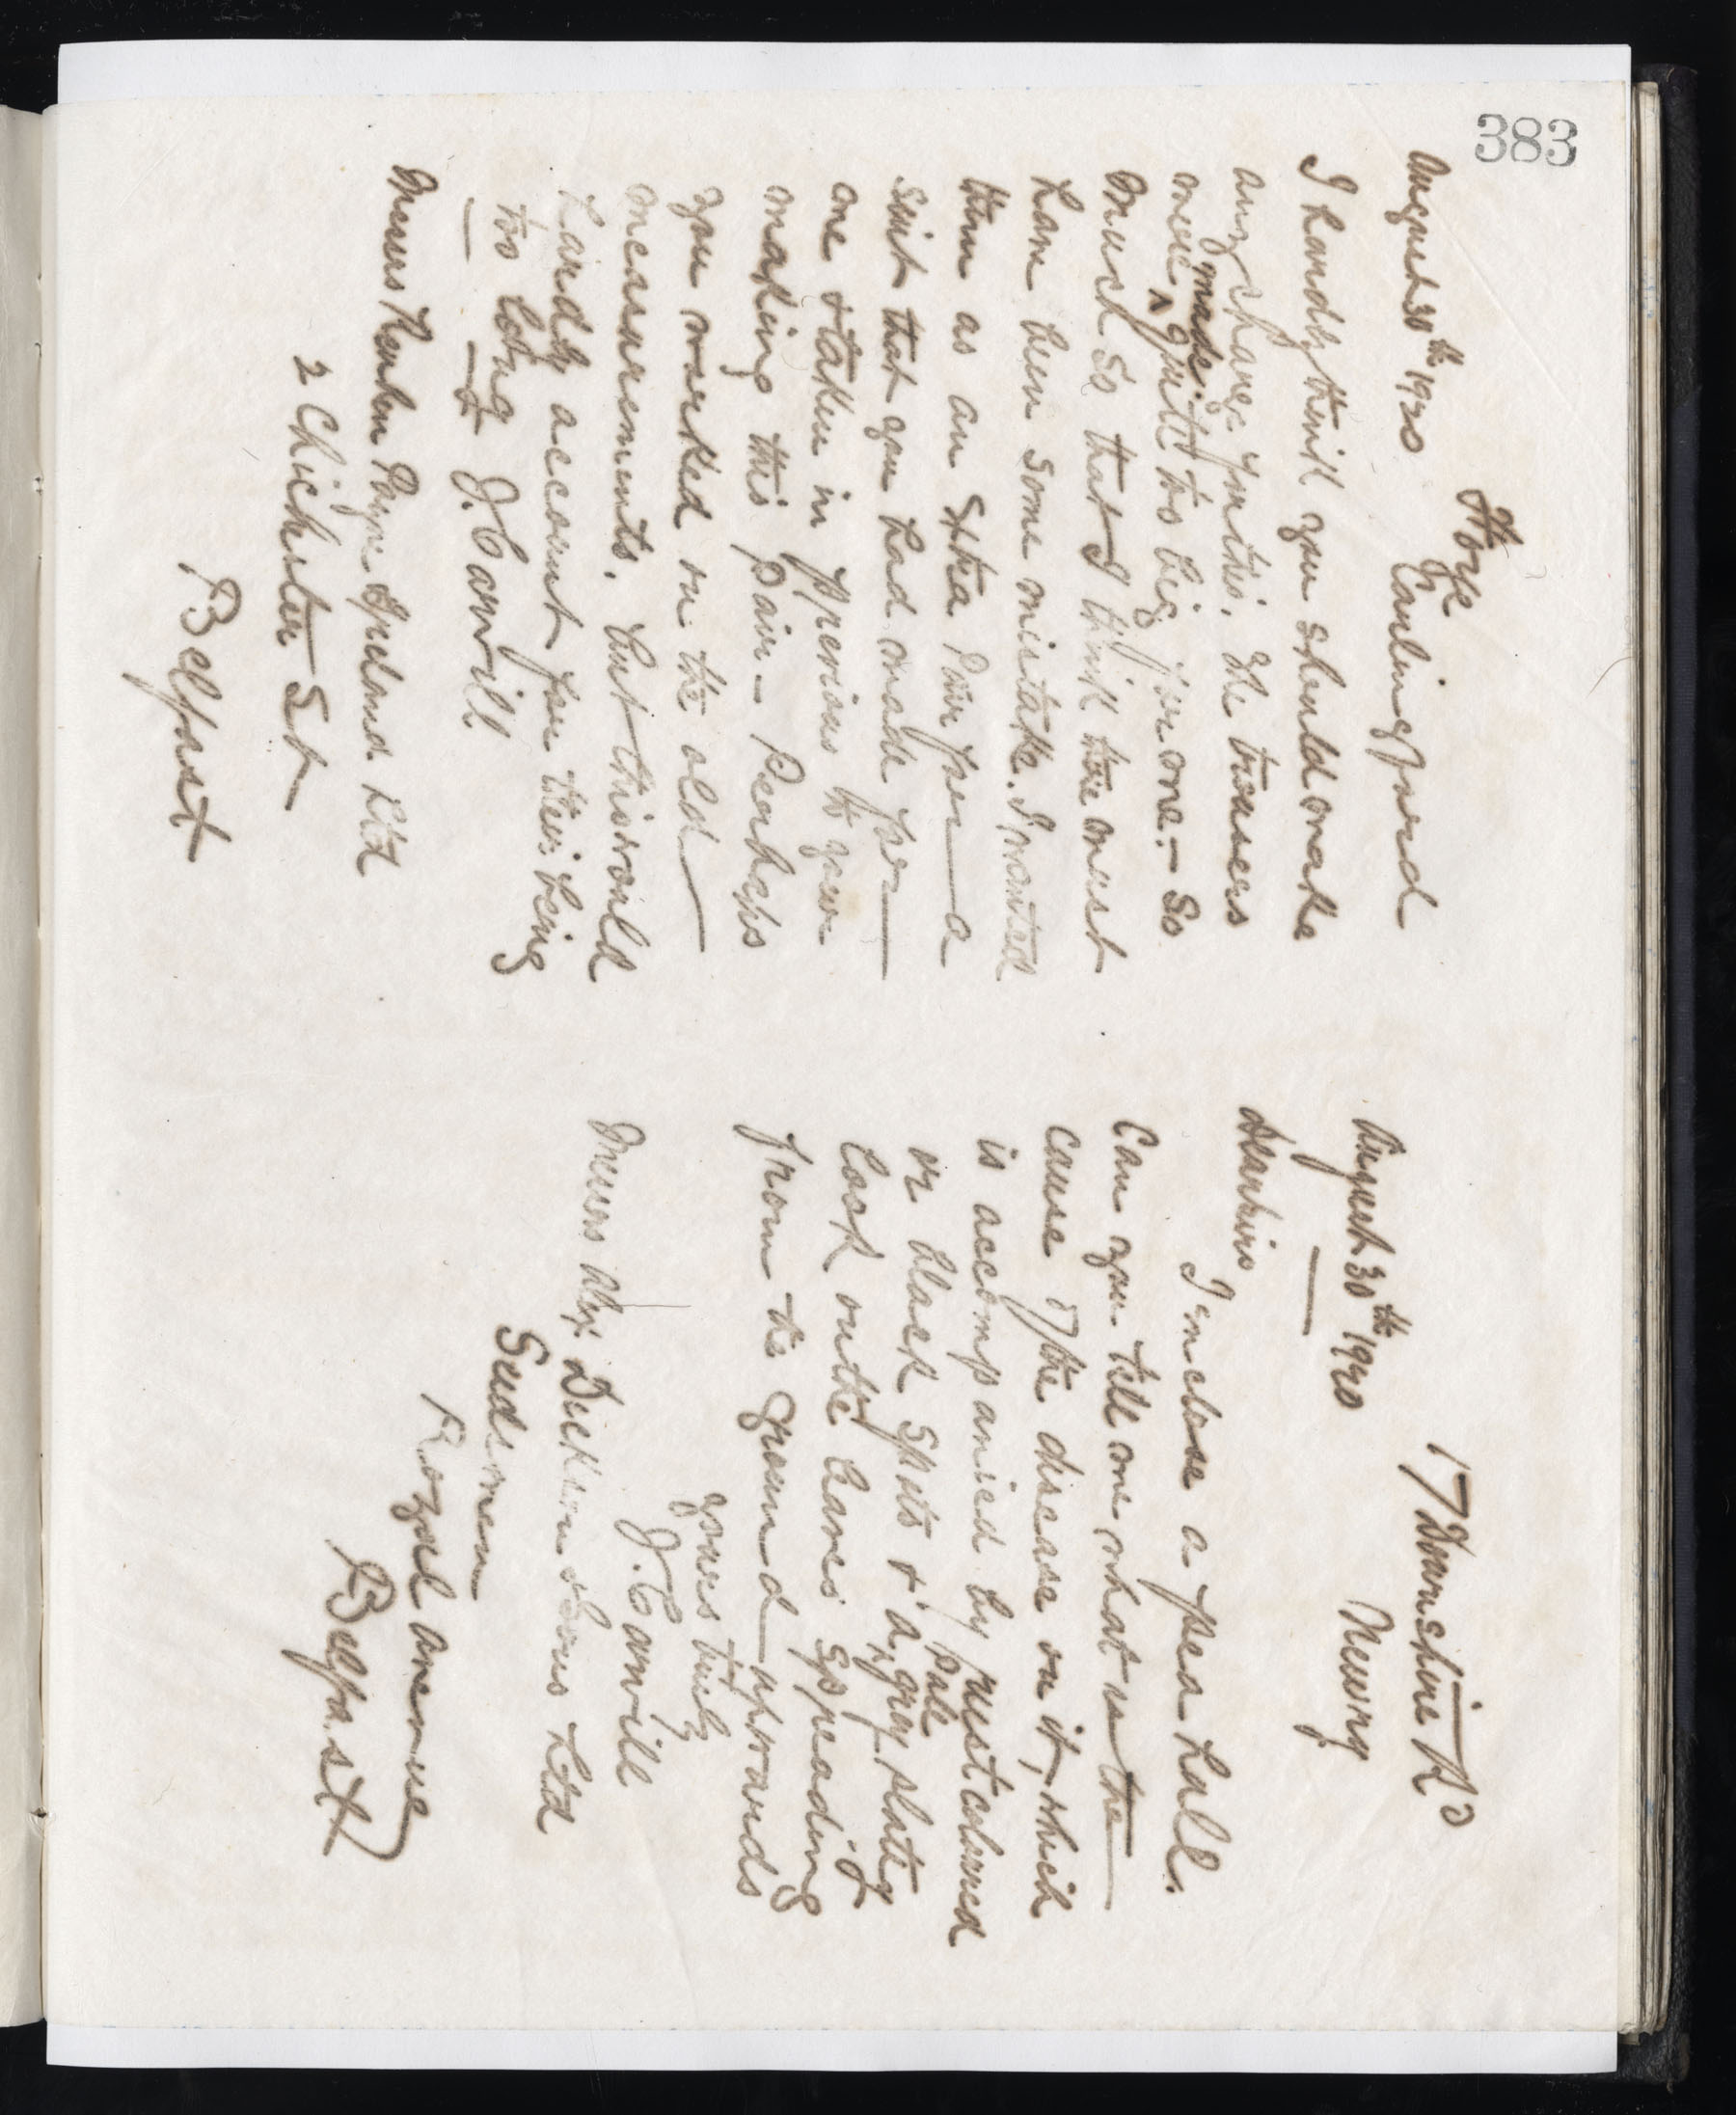 383
Hoye
Carlingford
August 30th 1920
I hardly think you should make
any charge for this. The trousers
were made quite too big for me. - So
much so that I think there must
have been some mistake. I wanted
them as an Extra Pair for a
suit that you had made for
me & taken in previous to your
making this pair - Perhaps
you worked on the old
measurements. but this would
hardly account for their being
too long
J. Carvill
Messrs Ireland Ltd
2 Chichester St
Belfast
17 Downshire Rd
Newry
August 30th 1920
Dear Sirs
I enclose a pea hull.
Can you tell me what is the
cause of the disease on it, which
is accompanied by rust coloured
or black spots & a pale gray slatey
look on the leaves spreading
from the ground upwards
yours truly
J. Carvill
Messrs Alex. Dickson & Sons Ltd
Seedsmen
Royal Avenue
Belfast